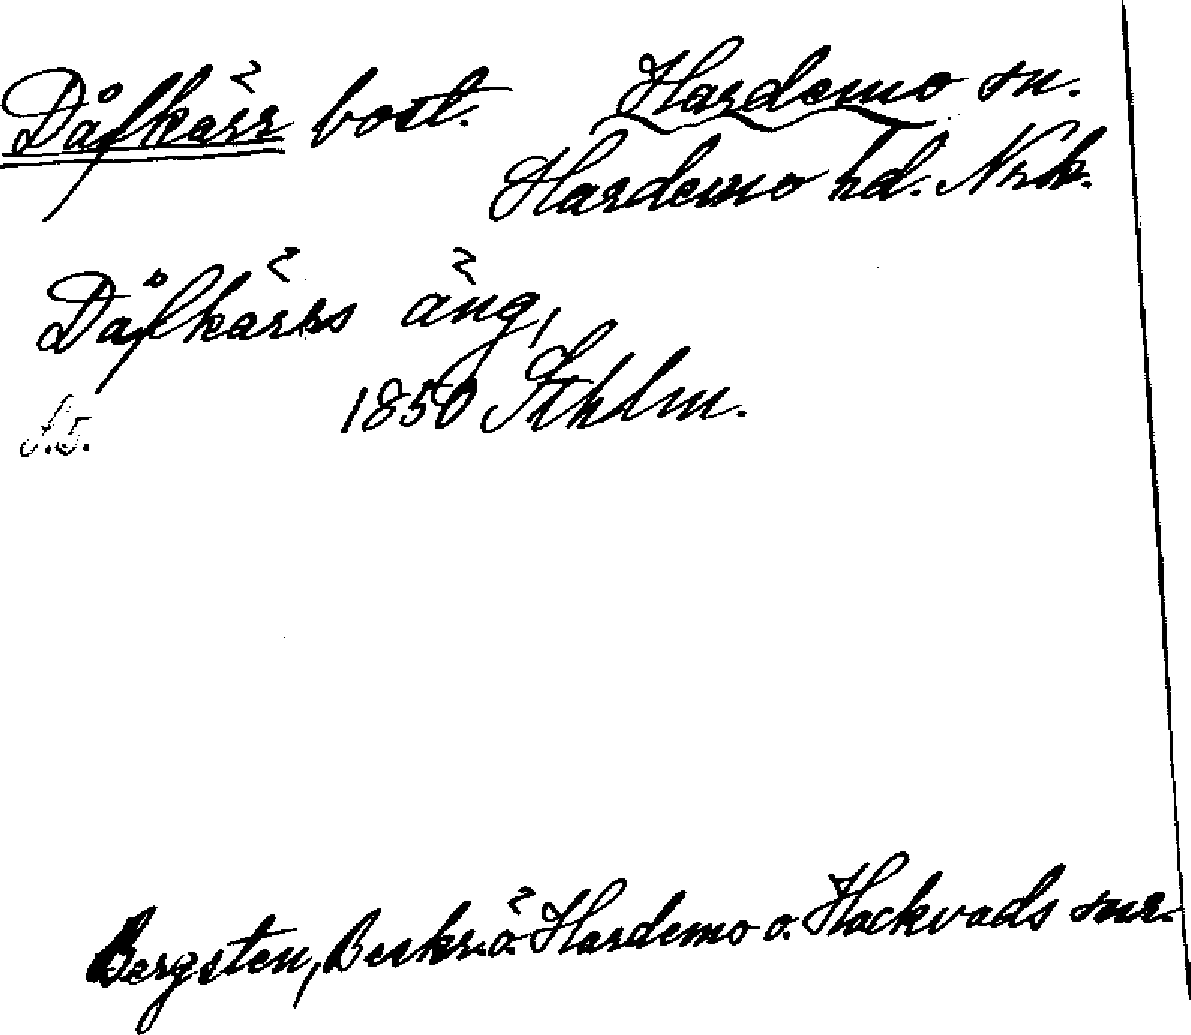 Dåfkärr bost. Hardemo sn.
Hardemo hd. Nrk.
Dåfkärrs äng,
1850 Sthlm.
S.5.
Bergsten, Beskr. ö. Hardemo o. Hackvads snr.